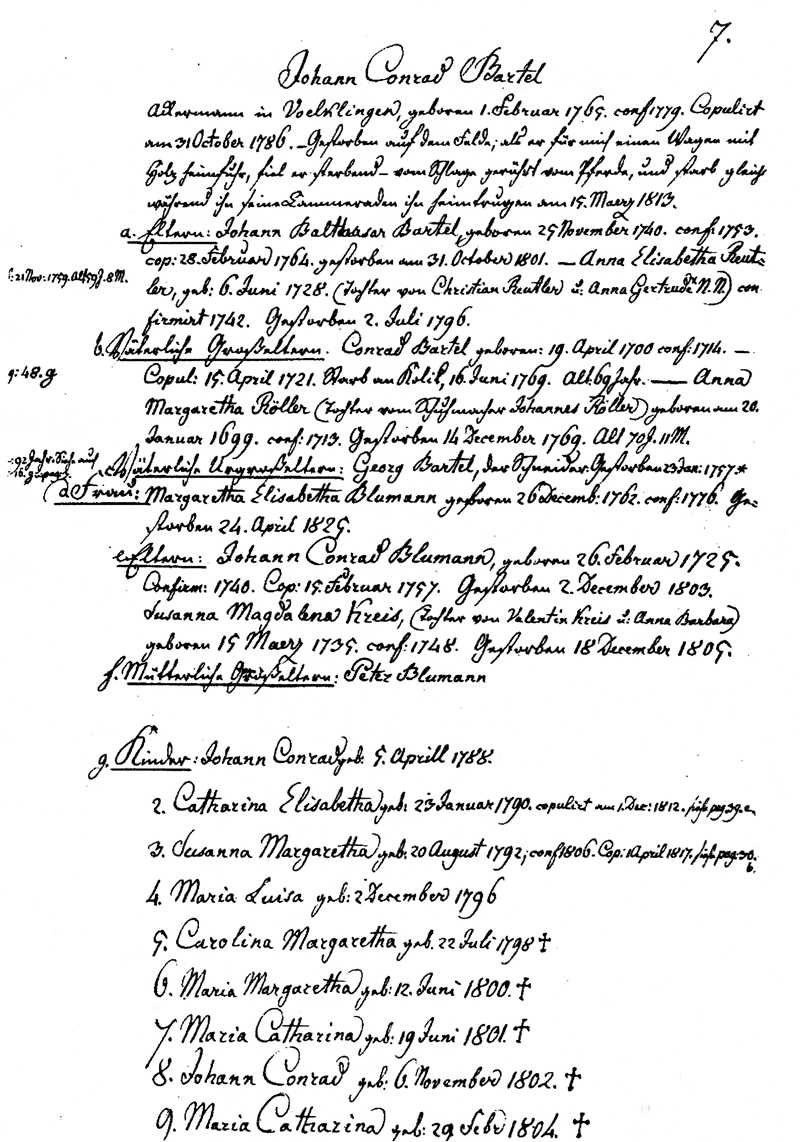 7.
Johann Conrad Bartel
Ackermann in Voelklingen, geboren 1. Februar 1765. conf 1779. Copulirt
am 31 October 1786. – Gestorben auf dem Felde; als er für mich einen Wagen mit
Holz heimfuhr, fiel er sterbend – vom Schlage gerührt vom Pferde, und starb gleich
während ihn seine Cammeraden ihn heimtrugen am 15. Maerz 1813.
a. Eltern: Johann Balthasar Bartel, geboren 25 November 1740. conf: 1753.
cop: 28. Februar 1764. gestorben am 31. October 1801. — Anna Elisabetha Reut-
21 Nov: 1759. Alt 59 J. 8 M.
ler, geb: 6. Juni 1728. (Tochter von Christian Reutler u: Anna Gertrude N.N.) con
firmirt 1742. Gestorben 2. Juli 1796.
b. Väterliche Großeltern. Conrad Bartel geboren: 19. April 1700 conf: 1714. —
q: 48. g
Copul: 15. April 1721. Starb an Kolik, 16. Juni 1769. Alt: 69 Jahr. — Anna
Margaretha Röller (Tochter vom Schuhmacher Johannes Röller) geboren am 20.
Januar 1699. conf: 1713. Gestorben 14 December 1769. Alt 70 J. 11 M.
92 Jahr. Siehe auf
c. Väterliche Urgroßeltern: Georg Bartel, der Schneider. Gestorben 23 Jan: 1757.*
(d Frau: Margaretha Elisabetha Blumann geboren 26 Decemb: 1762. conf: 1776. Ge-
storben 24. April 1825.
e. Eltern: Johann Conrad Blumann, geboren 26. Februar 1725.
Confirm: 1740. Cop: 15. Februar 1757. Gestorben 2. December 1803.
Susanna Magdalena Kreis, (Tochter von Valentin Kreis u: Anna Barbara)
geboren 15 Maerz 1735. conf: 1748. Gestorben 18 December 1805.
f. Mütterliche Großeltern: Peter Blumann
g. Kinder: Johann Conrad geb: 5. Aprill 1788.
2. Catharina Elisabetha geb: 23 Januar 1790. copulirt am 1. Dec: 1812. siehe pag 39. e.
3. Susanna Margaretha geb: 20 August 1792; conf 1806. Cop: 1 April 1817. siehe pag: 30.
b.
4. Maria Luisa geb: 2 December 1796
5. Carolina Margaretha geb. 22 Juli 1798 †
6. Maria Margaretha geb: 12. Juni 1800. †
7. Maria Catharina geb: 19 Juni 1801. †
8. Johann Conrad geb: 6. November 1802. †
9. Maria Catharina geb: 29 Febr 1804. †